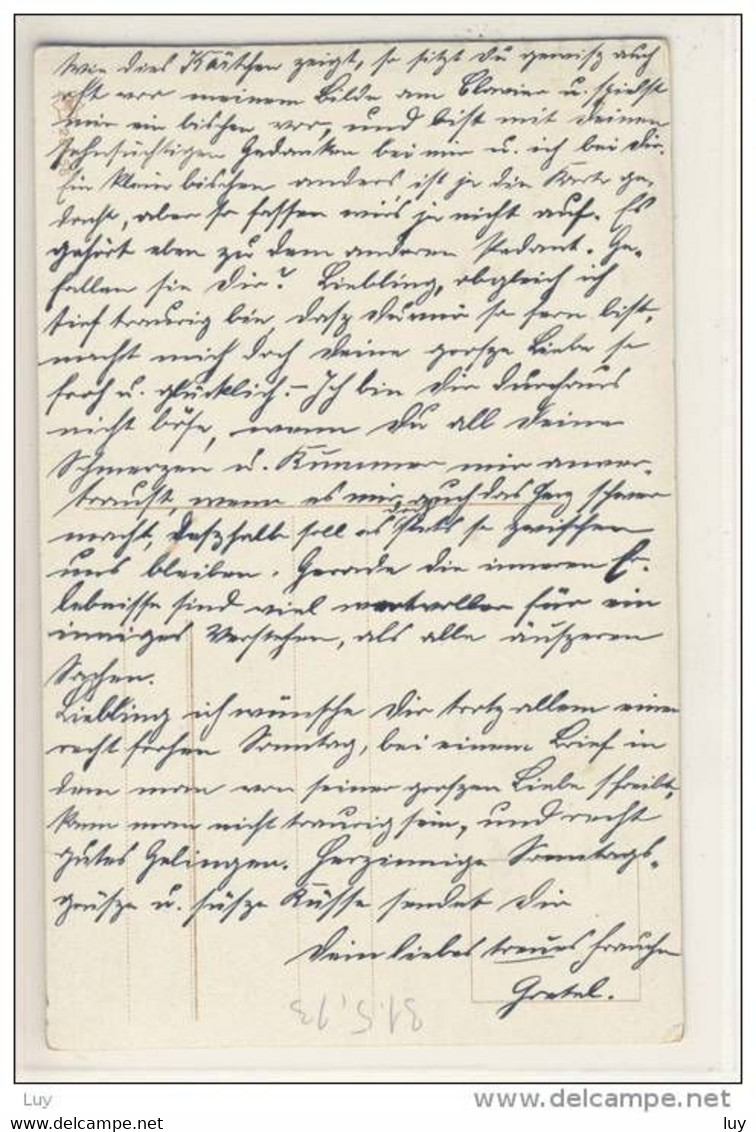 Wie dies Kärtchen zeigt, so sitzt Du gewisz auch
oft vor meinem Bilde am Clavier u. spielst
mir ein bischen vor, und bist mit Deinen
sehnsüchtigen Gedanken bei mir u. ich bei Dir.
Ein klein bischen anders ist ja die Karte ge-
dacht, aber so fassen wir's ja nicht auf. Es
gehört eben zu dem anderen Pedant. Ge-
fallen sie Dir? Liebling, obgleich ich
tief traurig bin, dasz Du mir so fern bist,
macht mich doch Deine grosze Liebe so
froh u. glücklich. – Ich bin Dir durchaus
nicht böse, wenn Du all Deine
Schmerzen u. Kummer mir anver-
traust, wenn es mir auch das Herz schwer
macht, deszhalb soll es stets so zwischen
uns bleiben. Gerade die inneren Er-
lebnisse sind viel wertvoller für ein
inniges Verstehen, als alle äuszeren
Sachen.
Liebling ich wünsche Dir trotz allem einen
recht frohen Sonntag, bei einem Brief in
dem man von seiner groszen Liebe schreibt,
kann man nicht traurig sein, und recht
gutes Gelingen. Herzinnige Sonntags-
grüsze u. süsze Küsse sendet Dir
Dein liebes treues Frauchen
Gretel.
31.5.13
Luy
delcampe.net
luy